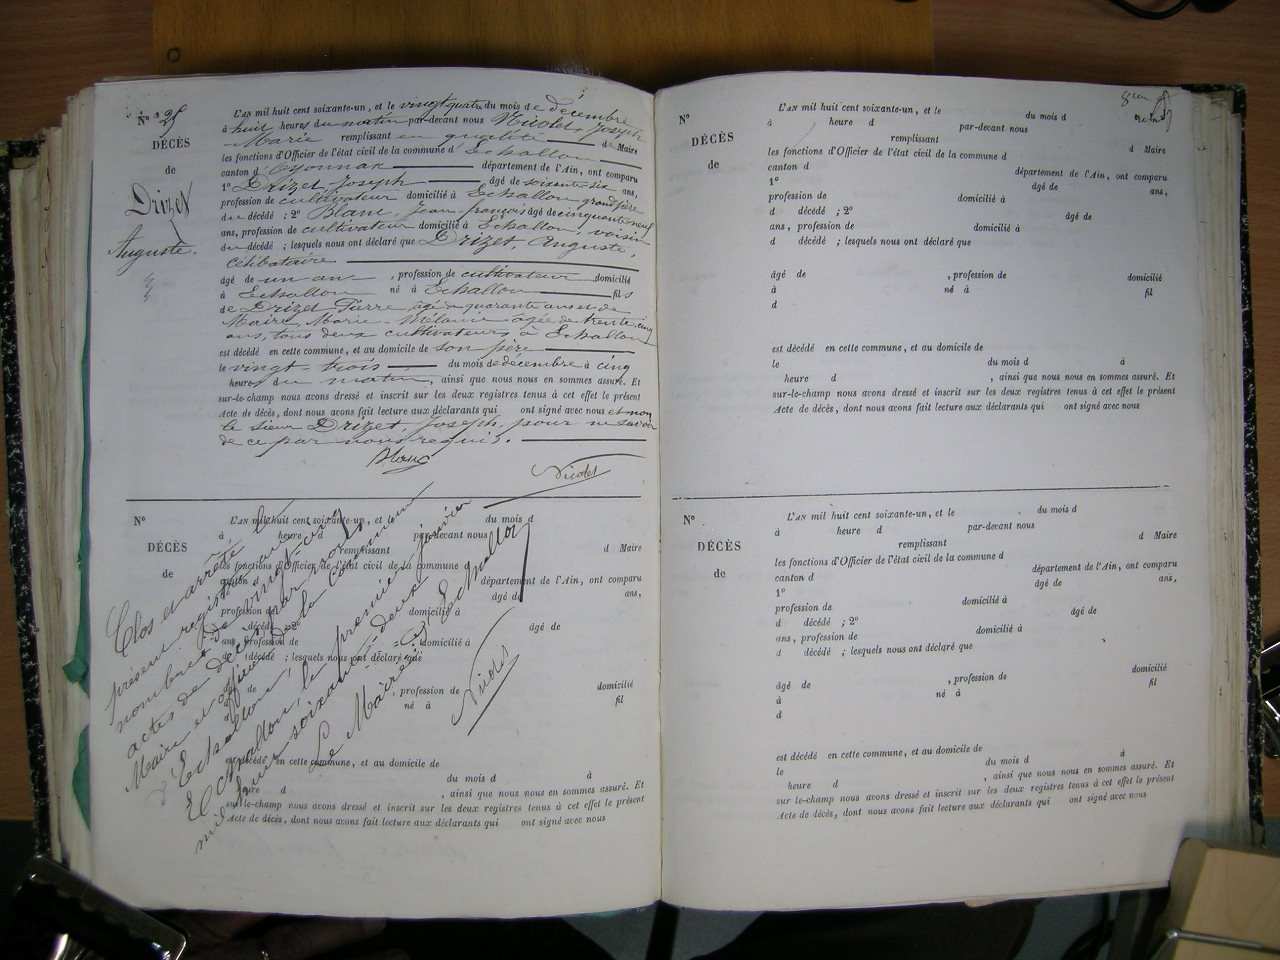 N° 25
DÉCÈS
de
Drizet
Auguste.
L'AN mil huit cent soixante-un, et le vingt quatre du mois de décembre
à huit heures du matin par-devant nous Nicolet, Joseph
Marie remplissant en qualité de Maire
les fonctions d'Officier de l'état civil de la commune d'Echallon
canton d'Oyonnax département de l'Ain, ont comparu
1° Drizet Joseph âgé de soixante six ans,
profession de cultivateur domicilié à Echallon grand père
du décédé ; 2° Blanc, Jean françois âgé de cinquante neuf
ans, profession de cultivateur domicilié à Echallon, voisin
du décédé ; lesquels nous ont déclaré que Drizet Auguste,
célibataire
âgé de un an , profession de cultivateur domicilié
à Echallon né à Echallon fils
de Drizet Pierre, âgé de quarante ans et de
Maire, Marie Mélanie agée de trente cinq
ans, tous deux cultivateurs à Echallon
est décédé en cette commune, et au domicile de son père
le vingt-trois du mois de décembre à cinq
heures du matin, ainsi que nous nous en sommes assuré. Et
sur-le-champ nous avons dressé et inscrit sur les deux registres tenus à cet effet le présent
Acte de décès, dont nous avons fait lecture aux déclarants qui ont signé avec nous et non
le sieur Drizet, Joseph, pour ne savoir
de ce par nous requis.
Blanc
Nicolet
N°
DÉCÈS
de
L'AN mil huit cent soixante-un, et le du mois d
à heure d par-devant nous
remplissant d Maire
les fonctions d'Officier de l'état civil de la commune d
canton d département de l'Ain, ont comparu
âgé de ans,
profession de domicilié à
d décédé âgé de
ans, profession de domicilié à
d décédé ; lesquels nous ont déclaré que
âgé de , profession de domicilié
né à fil
est décédé en cette commune, et au domicile de
du mois d à
heure d , ainsi que nous nous en sommes assuré. Et
sur-le-champ nous avons dressé et inscrit sur les deux registres tenus à cet effet le présent
Acte de décès, dont nous avons fait lecture aux déclarants qui ont signé avec nous
Clos et arrêté le
présent registre au
nombre de vingt-cinq
actes de décès par nous
Maire et officier de la commune
d'Echallon,
Echallon, le premier janvier
mil huit soixante-deux
Le Maire d'Echallon
Nicolet
N°
DÉCÈS
de
L'AN mil huit cent soixante-un, et le du mois d
à heure d par-devant nous
remplissant d Maire
les fonctions d'Officier de l'état civil de la commune d
canton d département de l'Ain, ont comparu
1° âgé de ans,
profession de domicilié à
d décédé ; 2° âgé de
ans, profession de domicilié à
d décédé ; lesquels nous ont déclaré que
âgé de , profession de domicilié
à né à fil
d
est décédé en cette commune, et au domicile de
le du mois d à
heure d , ainsi que nous nous en sommes assuré. Et
sur-le-champ nous avons dressé et inscrit sur les deux registres tenus à cet effet le présent
Acte de décès, dont nous avons fait lecture aux déclarants qui ont signé avec nous
N°
DÉCÈS
de
L'AN mil huit cent soixante-un, et le du mois d
à heure d par-devant nous
remplissant d Maire
les fonctions d'Officier de l'état civil de la commune d
canton d département de l'Ain, ont comparu
1° âgé de ans,
profession de domicilié à
d décédé ; 2° âgé de
ans, profession de domicilié à
d décédé ; lesquels nous ont déclaré que
âgé de , profession de domicilié
à né à fil
d
est décédé en cette commune, et au domicile de
le du mois d à
heure d , ainsi que nous nous en sommes assuré. Et
sur-le-champ nous avons dressé et inscrit sur les deux registres tenus à cet effet le présent
Acte de décès, dont nous avons fait lecture aux déclarants qui ont signé avec nous